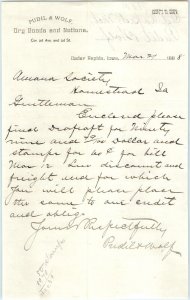 PUDIL & WOLF,
Dry Goods and Notions,
Cor. 2d Ave. and 2d St.
Cedar Rapids, Iowa, Mar 21 1888
Amana Society
Homestead Ia
Gentlemen
Enclosed please
find Draft for Ninety
nine and Dollar and
stamps for 40 ¢ for bill
Mar 12 less discount and
freight and for which
you will please place
the same to our credit
and oblige.
Yours Respectfully
Pudil & Wolf